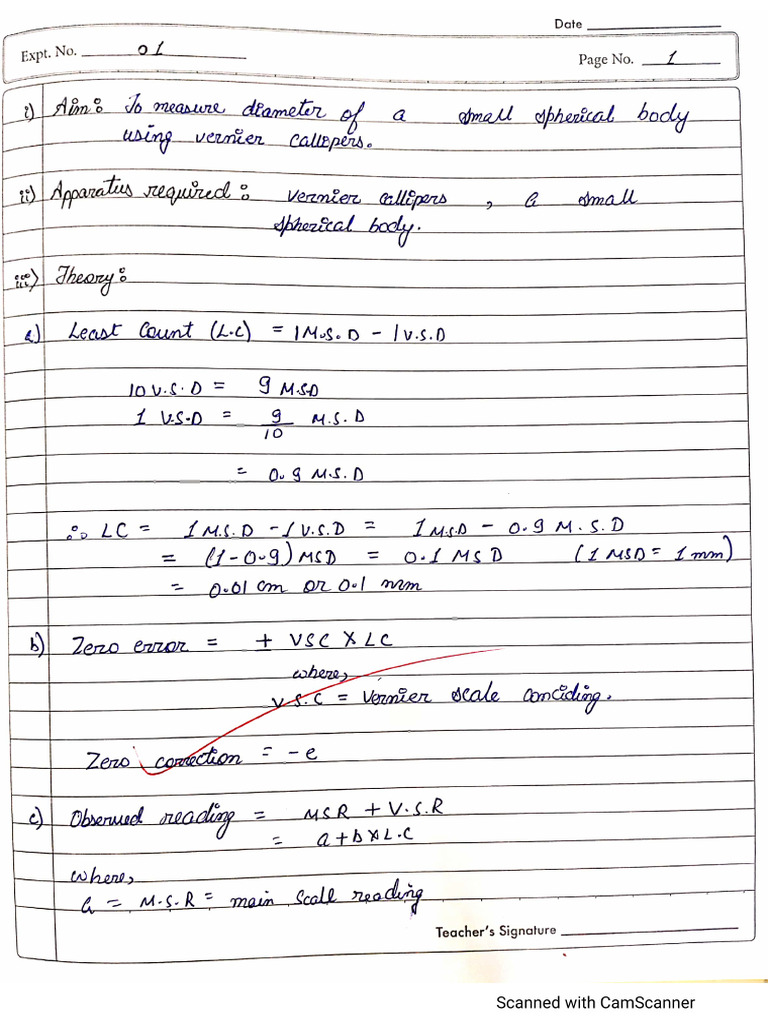 Date
Expt. No. 01
Page No. 1
i) Aim: To measure diameter of a small spherical body
using vernier callipers.
ii) Apparatus required: vernier callipers, a small
spherical body.
iii) Theory:
a) Least Count (L.C) = 1 M.S.D - 1 V.S.D
10 V.S.D = 9 M.S.D
1 V.S.D = 9/10 M.S.D
= 0.9 M.S.D
∴ LC = 1 M.S.D - 1 V.S.D = 1 M.S.D - 0.9 M.S.D
= (1-0.9) MSD = 0.1 MSD (1 MSD = 1 mm)
= 0.01 cm or 0.1 mm
b) Zero error = ± VSC X LC
where,
V.S.C = Vernier scale conciding.
Zero correction = - e
c) Observed reading = MSR + V.S.R
= a + b X L.C
where,
a = M.S.R = main scall reading
Teacher's Signature
Scanned with CamScanner